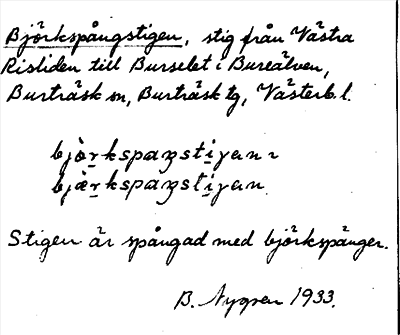 Björkspångstigen, stig från Västra
Risliden till Burselet i Bureälven,
Burträsk sn, Burträsk tg, Västerb. l.
Stigen är spångad med björkspänger.
B. Nygren 1933.